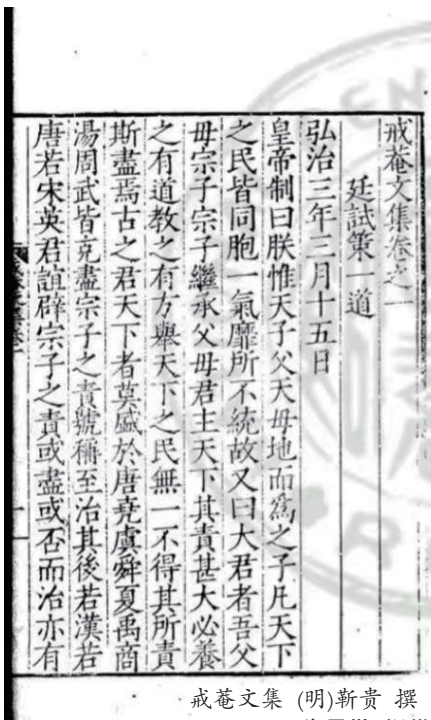 戒菴文集卷之一
廷試策一道
弘治三年三月十五日
皇帝制曰朕惟天子父天母地而爲之子凡天下
之民皆同胞一氣靡所不統故又曰大君者吾父
母宗子宗子繼承父母君主天下其責甚大必養
之有道教之有方舉天下之民無一不得其所責
斯盡焉古之君天下者莫盛於唐堯虞舜夏禹商
湯周武皆克盡宗子之責號稱至治其後若漢若
唐若宋英君誼辟宗子之責或盡或否而治亦有
戒菴文集 (明)靳贵 撰